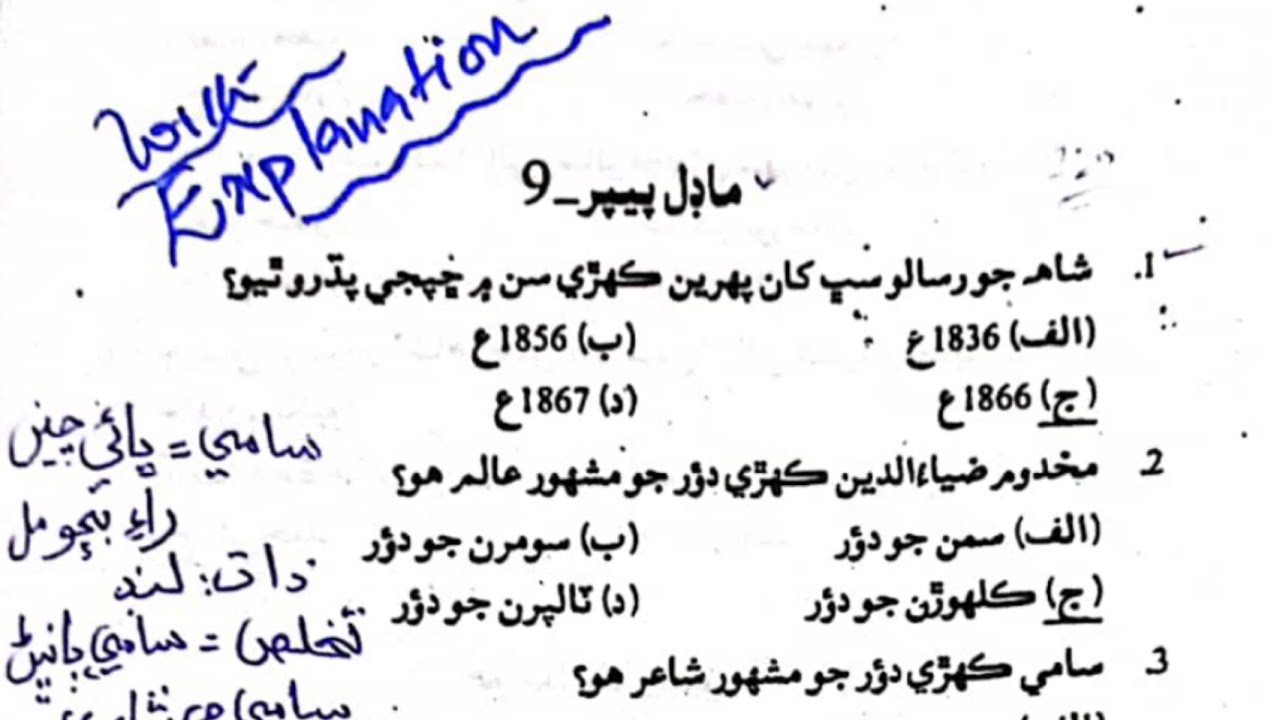 with
Explanation
ماڊل پيپر_9
1. شاھہ جو رسالو سڀ کان پهرين ڪهڙي سن ۾ ڇپجي پڌرو ٿيو؟
(الف) 1836ع (ب) 1856ع
(ج) 1866ع (د) 1867ع
2. مخدوم ضياءالدين ڪهڙي دؤر جو مشهور عالم هو؟
(الف) سمن جو دؤر (ب) سومرن جو دؤر
(ج) ڪلهوڙن جو دؤر (د) ٽالپرن جو دؤر
3. سامي ڪهڙي دؤر جو مشهور شاعر هو؟
سامي = ڀائي چين
راءِ بچومل
ذات: لنڊ
تخلص = سامي
سامي